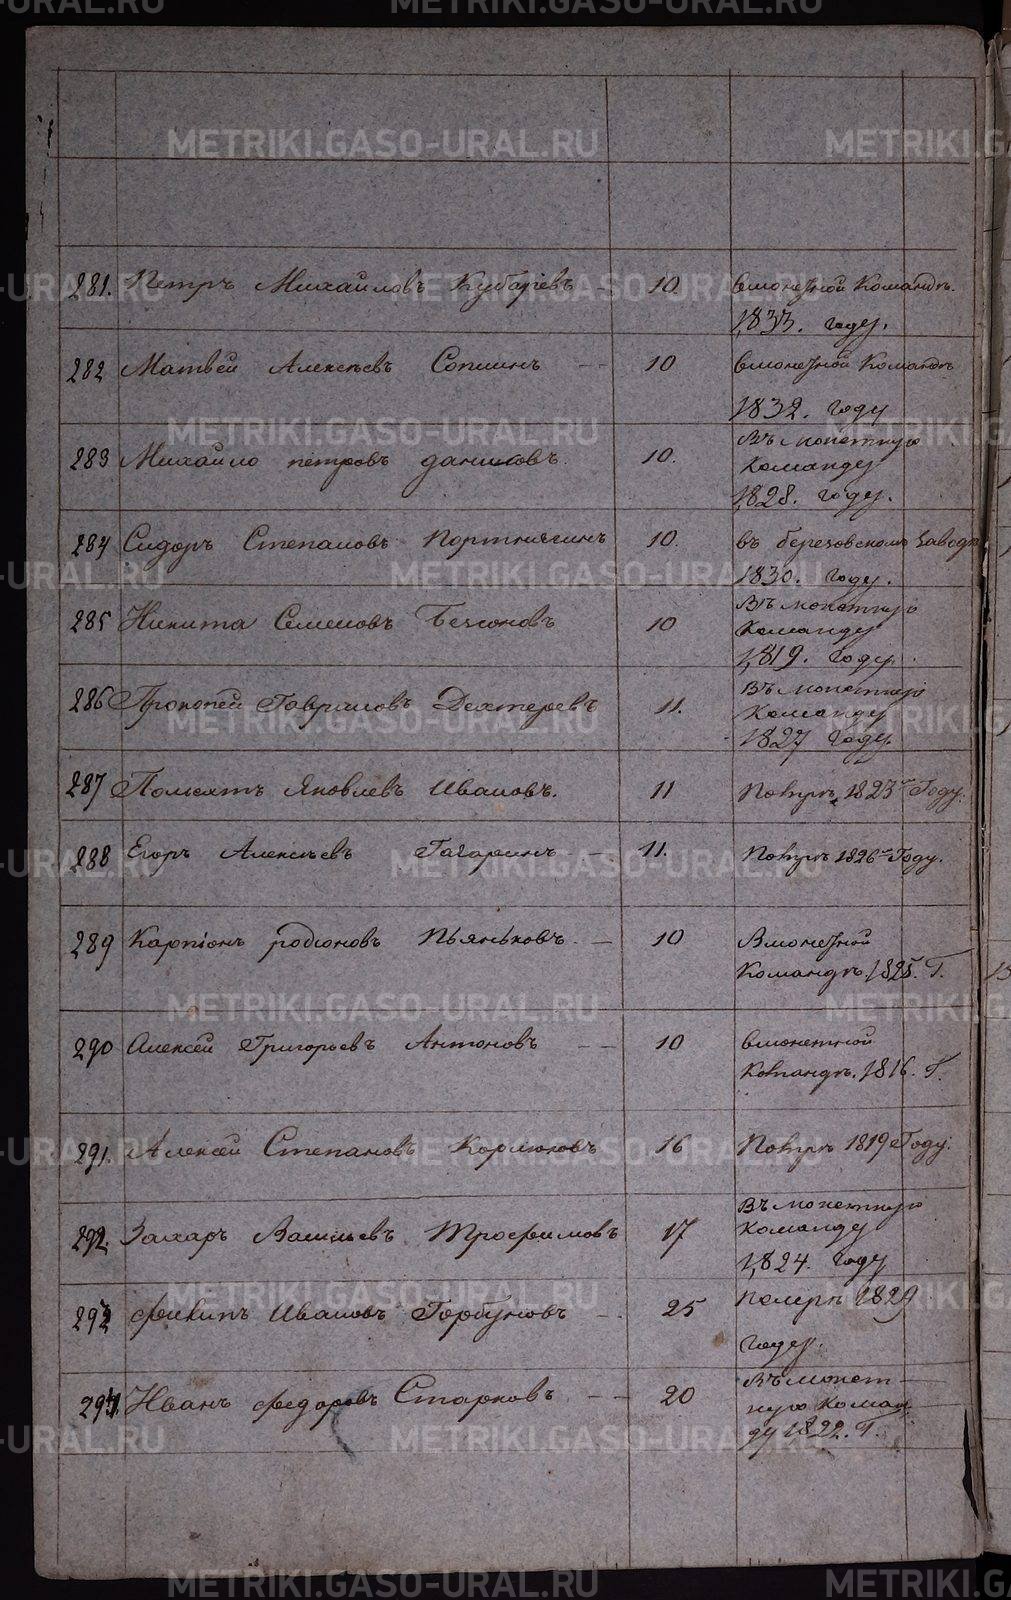 METRIKI.GASO-URAL.RU
281. Петръ Михайловъ Кубаревъ 10 вмонетной Командѣ.
1833. году.
282 Матвей Алексѣевъ Сопшинъ 10 вмонетной Командѣ
1832. году
283 Михайло петровъ даниловъ. 10. Въ монетную
Команду
1828. году.
284 Сидоръ Степановъ Портнягинъ 10. въ березовскомъ Заводѣ
1830. году.
285 Никита Семеновъ 10 Въ монетную
Команду
1819. году.
286 Прокопей Гавриловъ Дехтеревъ 11. Въ монетную
Команду
1827 году.
287 Яковлевъ Ивановъ. 11 1823 Году.
288 Егоръ Алексѣевъ Гагаринъ 11. 1826 Году.
289 Карпіонъ родіоновъ Пьянковъ. 10 Вмонетной
Командѣ. 1825. Г.
290 Алексей Григорьевъ Антоновъ 10 вмонетной
Командѣ. 1816. Г.
291. Алексей Степановъ Кормоковъ 16 1819 Году.
292. Захаръ Васильевъ Трофимовъ 17 Въ монетную
команду
1824. году
293 Ивановъ Горбуновъ 25 1829
году.
294. Иванъ федоровъ Старковъ 20 Въ монет
ную коман
ду 1822. Г.